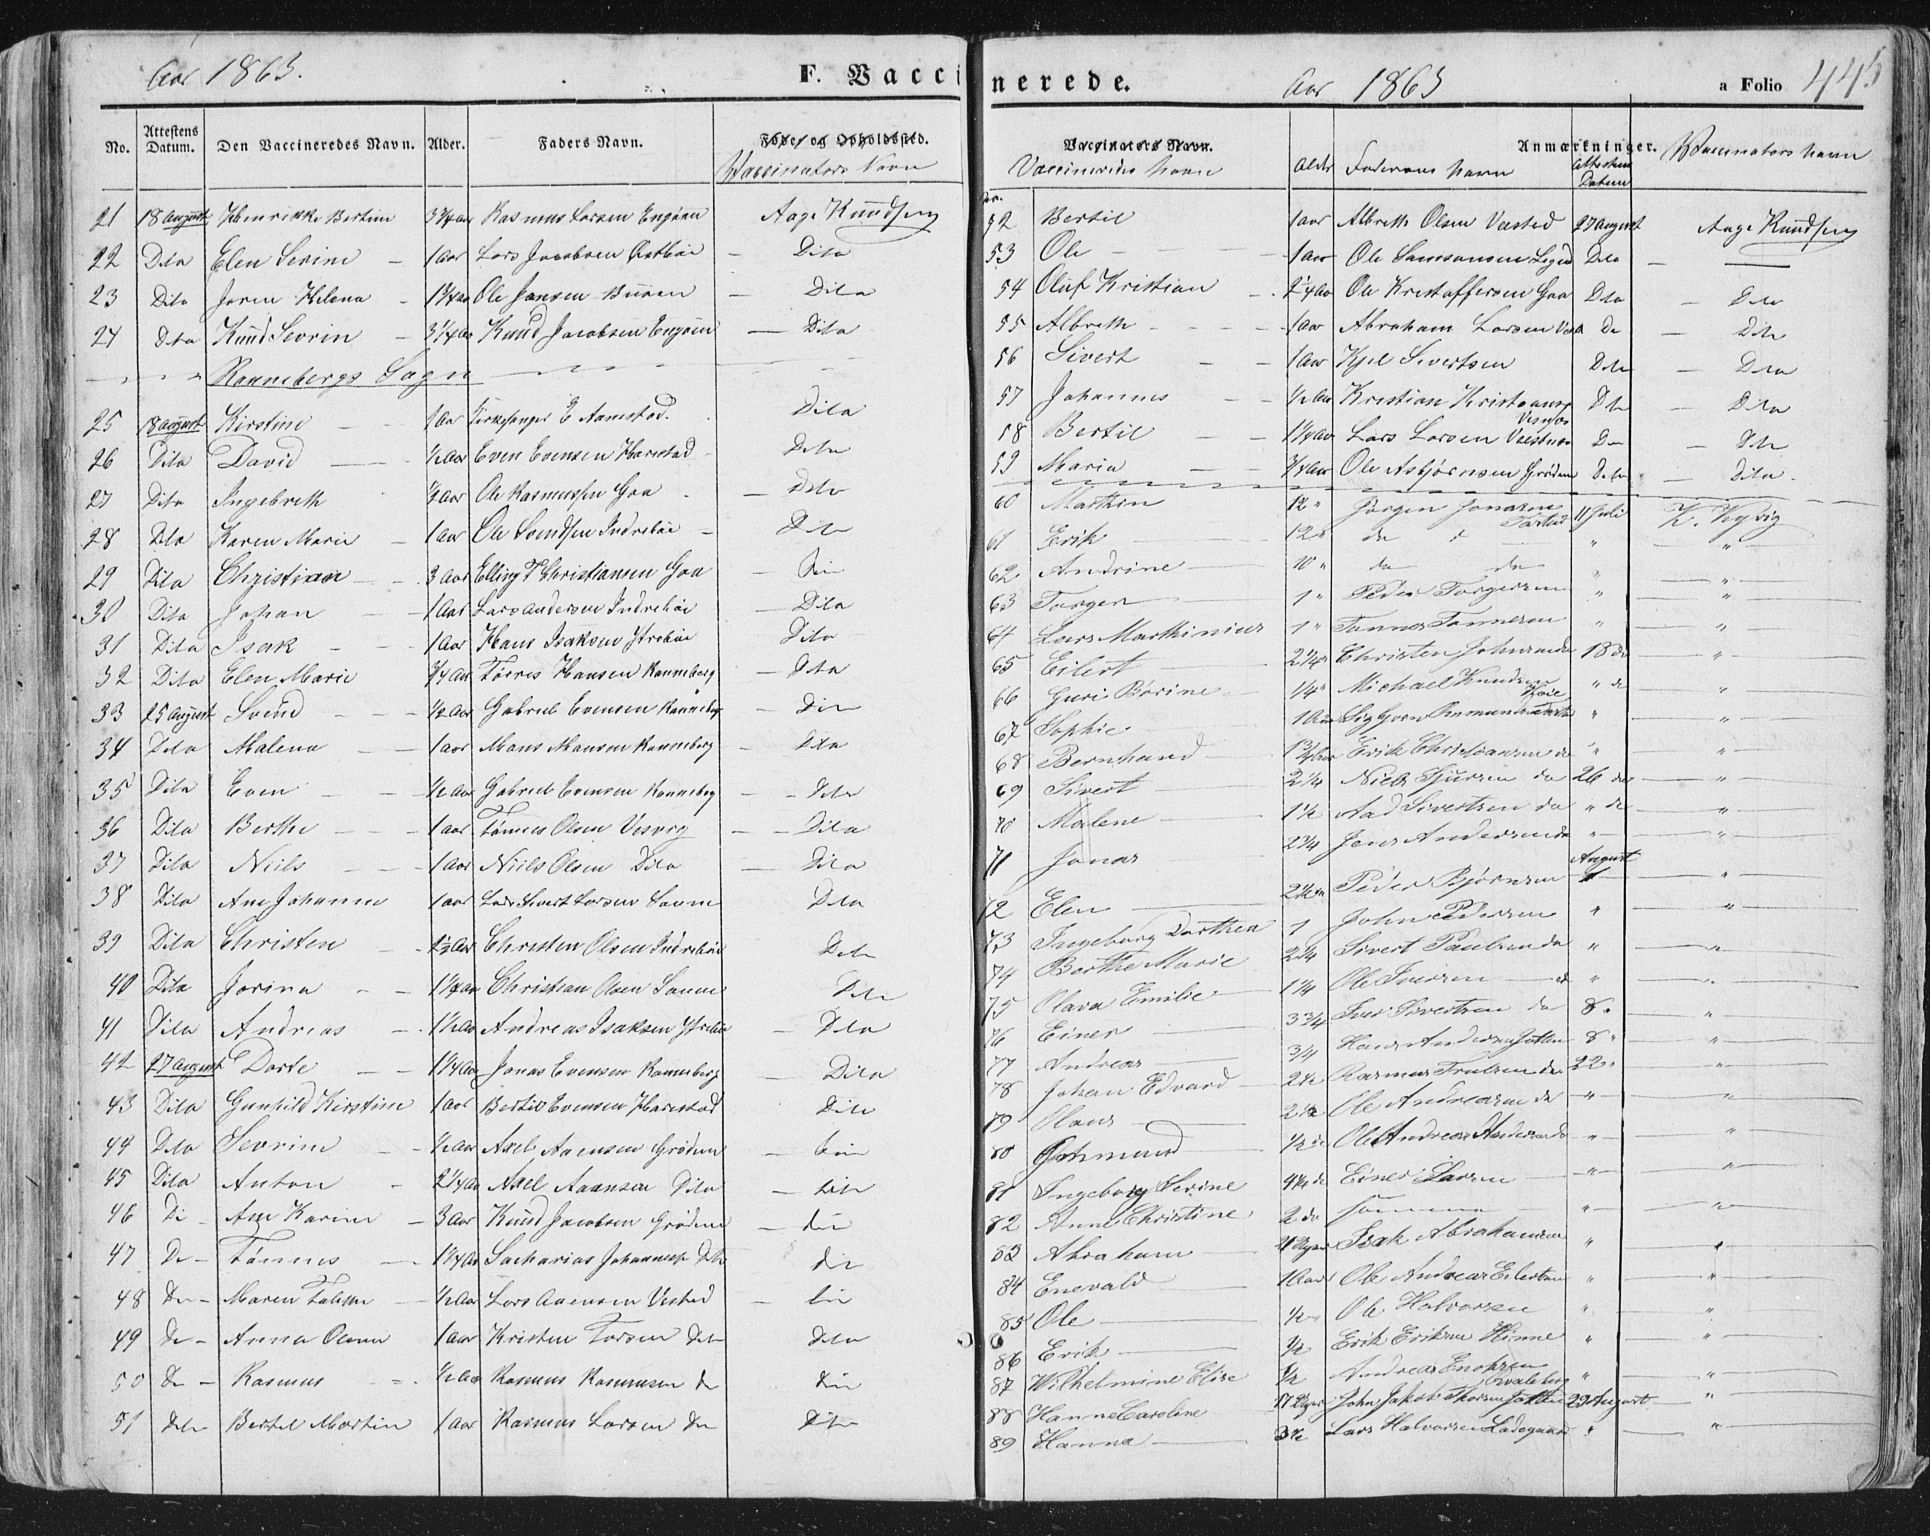 Aar 1863. F. Vaccinerede. Aar 1863 a Folio 445
No. Attestens Datum. Den Vaccineredes Navn. Alder. Faders Navn. Føde- og Opholdssted.
Vaccinators Navn
21 18 august Henrikke Bertine 3 3/4 aar Rasmus Larsen Engøen Aage Knudsen
22 Dito Elen Serine — 1 Aar Lars Jacobsen Østbøe — Dito
23 Dito Joren Helena - 1 3/4 aar Ole Jansen Buoen — Dito
24 Dito Knud Sevrin - 3 1/4 Aar Knud Jacobsen Engøen — Dito
Rannebergs Sogn
25 18 august Kirstine 1 Aar Kirkesanger E Aamstad. Dito
26 Dito David — 1/2 Aar Even Evensen Harestad - Dito
27 Dito Ingebreth 1/2 Aar Ole Rasmussen Goa — Dito
28 Dito Karen Marie - 1 Aar Ole Svendsen Indrebøe - Dito
29 Dito Christian - 3 Aar Elling T Christiansen Goa - Dito
30 Dito Johan - 1 Aar Lars Andersen Indrebøe - Dito
31 Dito Isak - 1 Aar Hans Isaksen Ytrebøe Dito
32 Dito Elen Marie 3/4 Aar Tørres Hansen Ranneberg - Dito
33 25 august Svend - 1/2 Aar Gabriel Evensen Ranneberg - Dito
34 Dito Malena - 1 aar Mans Mansen Ranneberg - Dito
35 Dito Even - 1/2 Aar Gabriel Evensen Ranneberg - Dito
36 Dito Berthe - 1 aar Tønnes Olsen Viervig - Dito
37 Dito Niels - 1 Aar Niels Olsen Dito — Dito
38 Dito Ane Johanne 1 aar Lars Sivert Larsen Sande — Dito
39 Dito Christen - 1/2 Aar Christen Olsen Indrebøe Dito
40 Dito Jorina - 1 1/4 aar Christian Olsen Sande Dito
41 Dito Andreas - 1 1/2 Aar Andreas Isaksen Ytrebøe - Dito
42 27 august Dorte - 1 1/4 Aar Jonas Evensen Ranneberg — Dito
43 Dito Gunhild Kirstine 1 Aar Bertil Evensen Harestad Dito
44 Dito Sevrine - 1/2 Aar Axel Aaensen Grødem - Dito
45 Dito Anton - 2 1/4 Aar Axel Aaensen Dito — Dito
46 Do - Ane Karine - 3 Aar Knud Jacobsen Grødem - Dito
47 Do - Tønnes - 1 1/4 Aar Sacharias Johannesen Dito Dito
48 Do - Maren - 1/2 Aar Lars Aaensen Visted - Dito
49 Do - Anna Olena 1 aar Kristen Torsen Dito Dito
50 Do - Rasmus - 1/2 Aar Rasmus Rasmussen Do Dito
51 Dito Bertel Martin 1 aar Rasmus Larsen Do Dito
Vaccinators Navn. Anmærkninger.
Vaccineredes Navn Alder Faderens Navn Attestens Datum Vaccinators Navn
No.
52 Bertil 1 aar Albreth Olsen Visted 27 august Aage Knudsen
53 Ole - 1 aar Ole Samsonsen Dito —
54 Oluf Kristian - 2 1/4 aar Ole Kristoffersen Goa Dito — Dito
55 Albreth - 1 aar Abraham Larsen Do — Dito
56 Sivert - 1 aar Kjel Sivertsen Dito — Dito
57 Johannes - 1/2 Aar Kristian Kristiansen Dito — Dito
58 Bertil - 1 1/4 aar Lars Larsen Do — Dito
59 Maria - 3/4 aar Ole Asbjørnsen Grødem Dito — Dito
60 Marthin 12 " Jørgen Jonasen 11 Juli K. Vigvig
61 Erik 12 " do do " "
62 Andrine 10 " do do " "
63 Torger 1 " Peder Torgersen " "
64 Lars Marthinius 1 " Tønnes Tønnesen " "
65 Eilert 2 1/4 " Christen Johnsen do 13 do "
66 Guri Borine 1/4 " Michael Knudsen " do "
67 Sophie 1 Aar " "
68 Bernhard 1 3/4 Aar Erik Christiansen do " "
69 Sivert 2 1/4 Niels Sjursen do 26 do "
70 Malene 1 1/2 Aad Sivertsen do " do "
71 Jonas 2 3/4 Jens Andersen do " "
August
72 Elen 2 1/2 do Peder Bjørnsen 1 "
73 Ingeborg Dorthea 1 John Pedersen " "
74 Berthe Marie 2 3/4 Sivert Paulsen do " "
75 Olava Emilie 1 1/4 Ole Iversen do " "
76 Einer 3 3/4 Iver Sivertsen do 8 " "
77 Andreas 3/4 Hans Andersen Jotten 8 " "
78 Johan Edvard 2 1/2 Rasmus Trulsen do 22 " "
79 Olaus 2 1/2 Ole Andreasen do " "
80 Gjermund 1/2 do Ole Andreas Andersen do " "
81 Ingeborg Serine 4 1/2 do Einer Larsen " "
82 Anne Christine 2 do samme " "
83 Abraham Isak Abrahamsen " "
84 Enevald 1 Aar Ole Andreas Eilertsen " "
85 Ole 1/2 Ole Halvorsen " "
86 Erik 1/2 Erik Eriksen Hinne " "
87 Wilhelmine Elise 1/2 Andreas Enoksen " "
88 Hanne Caroline John Jakob Thorsen Jotten 29 August "
89 Hanna 3 1/2 Lars Halvorsen Ladegaard " "